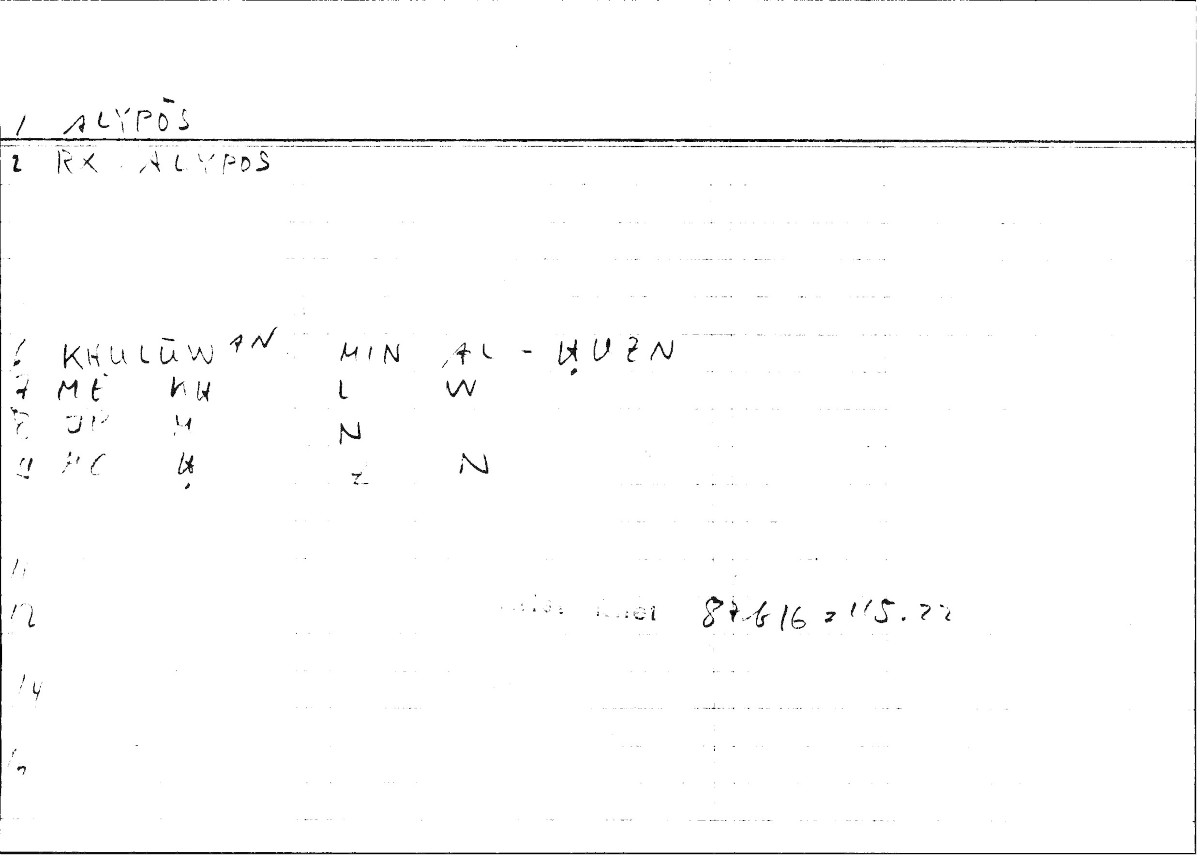 1 ALYPŌS
2 RX ALYPOS
6 KHULŪWAN MIN AL-ḤUZN
7 ME KH L W
8 M N
9 Ḥ Z N
11
12 87616 = 115.22
14